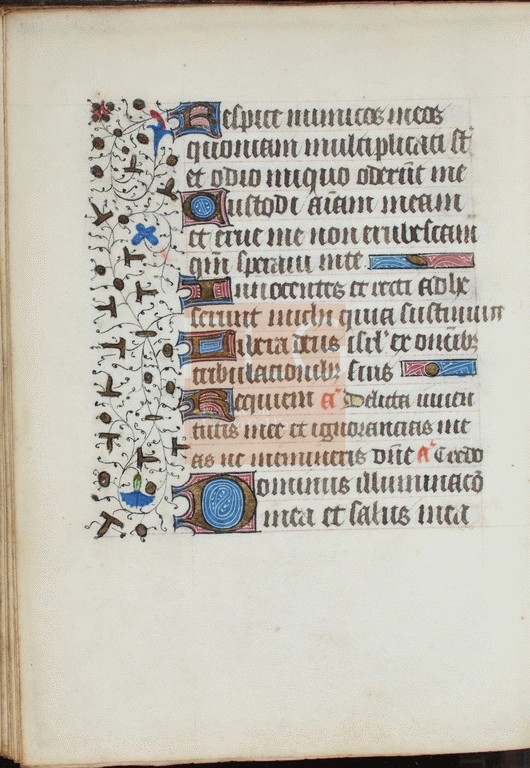 Respice inimicos meos
quoniam multiplicati st̄
et odio iniquo oderūt me
Custodi aīam meam
et erue me non erubescam
qm̄ speraui inte
Innocentes et recti adhe
serunt michi quia sustinui te
Libera deus isrl̄ ex omībz
tribulacionibz suis
Requiem aͣ Delicta iuuen
tutis mee et ignorancias me
as ne memineris dn̄e aͣ Credo
Dominus illuminacō
mea et salus mea